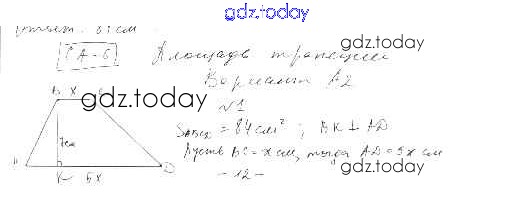 gdz.today
Ответ: см
СА-6
Площадь трапеции
gdz.today
Вариант А2
B x C
gdz.today
№1
S = 84 см² ; BK ⊥ AD
7см
Пусть BC = x см, тогда AD = 5x см
A D
K 5x
- 12 -
gdz.today